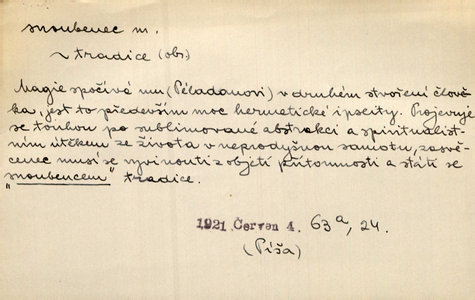 snoubenec m.
~ tradice (obr.)
Magie spočívá mu (Péladanovi) v druhém stvoření člově-
ka, jest to především moc hermetické ipseity. Projevuje
se touhou po sublimované abstrakci a spiritualist-
ním útěkem ze života v neprodyšnou samotu, zasvě-
cenec musí se vyvinouti z objetí přítomnosti a státi se
"snoubencem" tradice.
1921 Červen 4. 63a, 24.
(Píša)